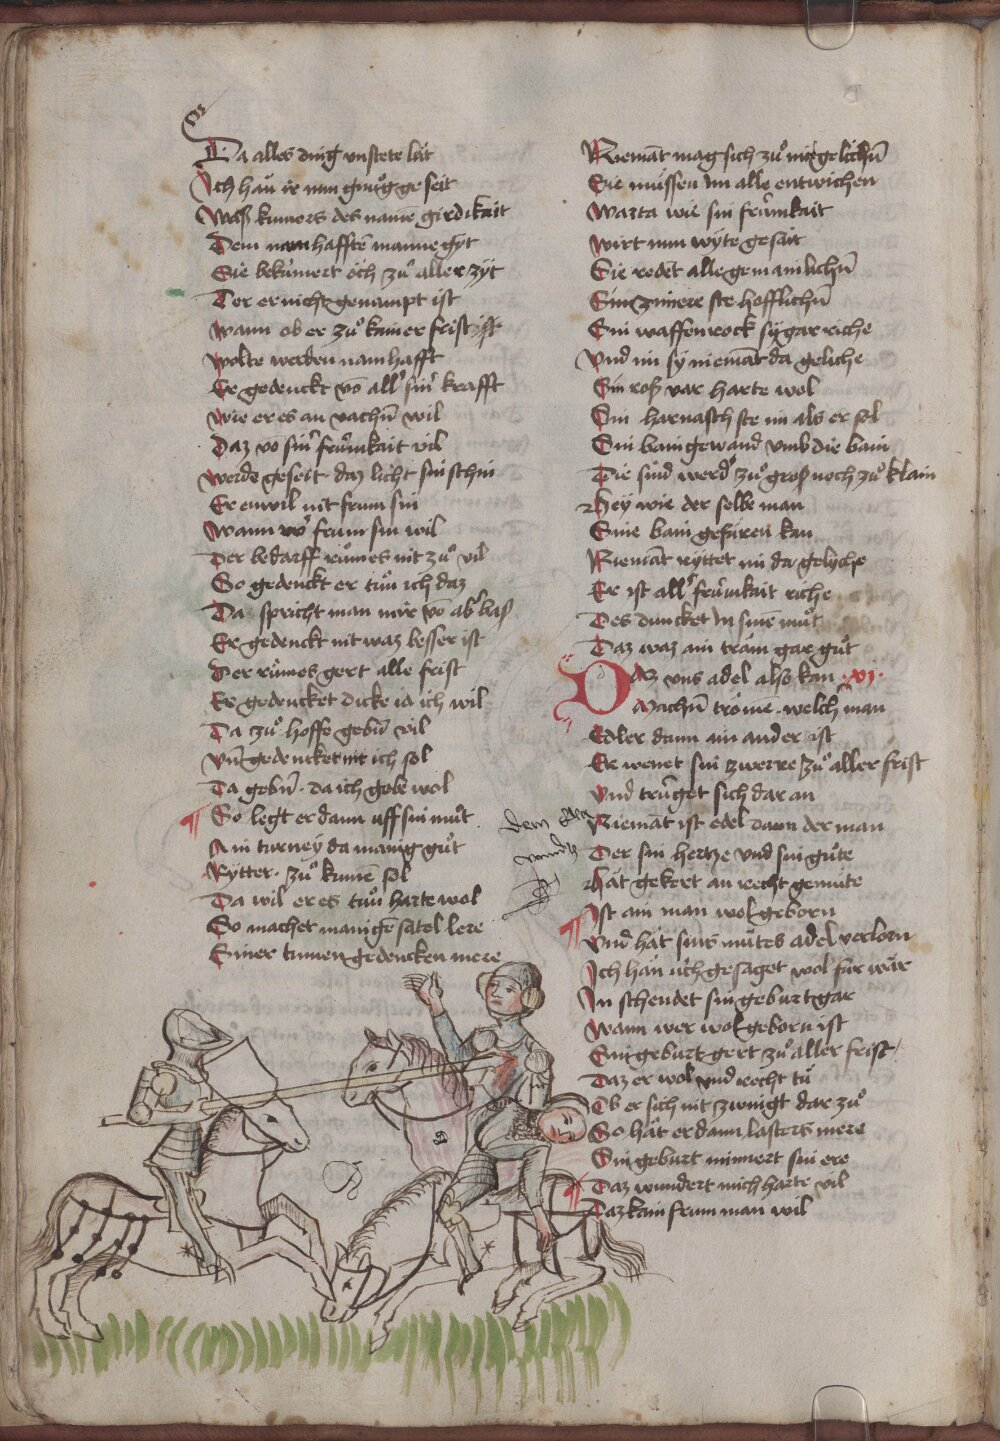 Da alles ding vnstete lät
Ich han ir nun gnůg geseit
Waß kumers des namē girdikait
Dem namhafften manne gÿt
Sie bekümert och zů aller zÿt
Der er nicht genampt ist
Wann ob er zů kainer frist ist
Wolte werden namhafft
Er gedenckt vō all' sin' krafft
Wie er es an vachen wil
Daz vo sin' frümkait vil
Werde geseit daz licht sin schin
Er enwil nit frum sin
Wann wer frum sin wil
Der bedarff růmes nit zů vil
So gedenckt er tůn ich daz
Da spricht man mir vo ab' baß
Er gedenckt nit waz besser ist
Der růmes gert alle frist
Er gedencket dicke ia ich wil
Da zů hoffe geben vil
Vn gedencket nit ich sol
Da geben da ich gebe wol
So legt er dann uff sin můt
Am turney da manig gůt
Rytter zů kumē sol
Da wil er es tůn harte wol
So machet manigē satel lere
Siner tumen gedencken mere
Niemāt mag sich zů im gelichen
Sie müssen im alle entwichen
Warta wie sin frümkait
Wirt nun wÿte gesait
Sie redēt alle gemainlichen
Sin zimere ste hofflichen
Sin waffenrock sÿ gar riche
Vnd im sÿ niemāt da geliche
Sin roß var harte wol
Sin harnasch ste im als er sol
Sin baingewand vmb die bain
Die sind wed' zů groß noch zů klain
Hey wie der selbe man
Sine bain gefüren kan
Niemāt ryttet im da gelyche
Er ist all' frümkait riche
Des duncket in sinē můt
Daz waz ain träm gar gůt
Daz vns adel also kan .vj.
Machen tröme welch man
Edler dann ain ander ist
Er wenet sin zwerre zů aller frist
Vnd trüget sich dar an
Niemāt ist edel dann der man
Der sin hertze vnd sin gůte
Hät gekert an recht gemüte
Ist ain man wol geborn
Vnd hät sins můtes adel verlorn
Ich hän üch gesaget wol für wär
In schendet sin geburt gar
Wann wer wol geborn ist
Sin geburt gert zů aller frist
Daz er wol vnd recht tů
Ob er sich nit zwingt dar zů
So hät er dann lasters mere
Sin geburt minnert sin ere
Daz wundert mich harte vil
Daz kain frum man wil